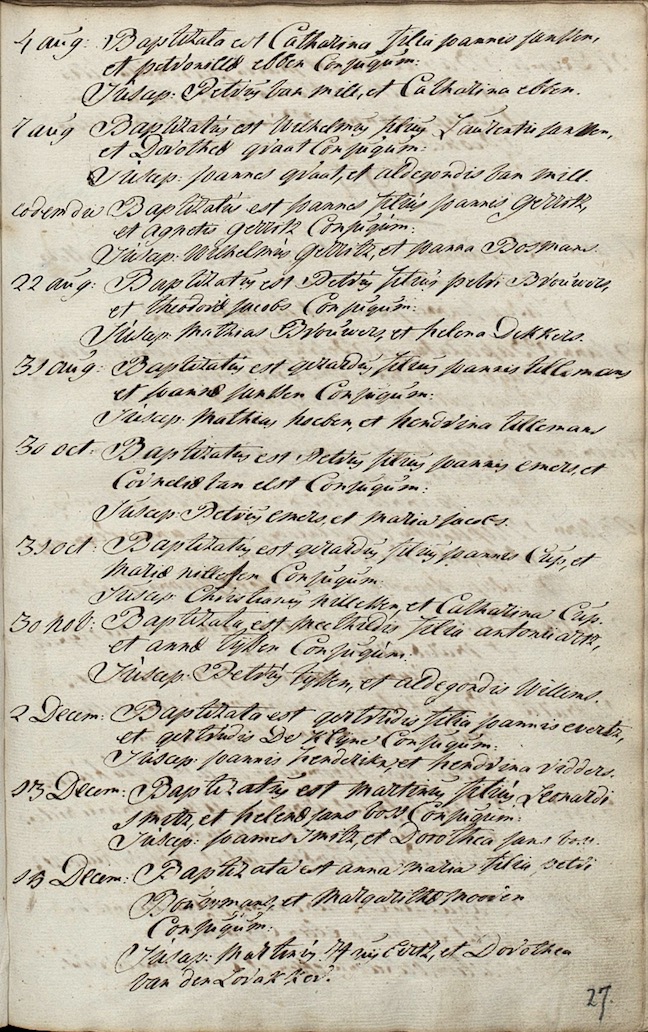 4 aug: Baptizata est Catharina filia joannis janssen,
et petronillæ ebben Conjugum:
Suscep: Petrus van mill, et Catharina ebben.
7 aug Baptizatus est Wilhelmus filius Laurentii janssen,
et Dorotheæ graat Conjugum:
Suscep: joannes graat, et aldegondis van mill.
eodem die Baptizatus est joannes filius joannis gerritz,
et agnetis gerritz Conjugum:
Suscep: Wilhelmus gerritz, et joanna Bosmans.
22 aug: Baptizatus est Petrus filius petri Brouwers,
et theodoræ jacobs Conjugum:
Suscep: mathias Brouwers, et helena Dekkers.
31 aug: Baptizatus est gerardus filius joannis tillemans
et joannæ janssen Conjugum:
Suscep: mathias hoeben, et hendrina tillemans
30 oct: Baptizatus est Petrus filius joannis emers, et
Corneliæ van elst Conjugum:
Suscep: Petrus emers, et maria jacobs.
31 oct: Baptizatus est gerardus filius joannis Cup, et
mariæ nillessen Conjugum:
Suscep: Christianus nillessen, et Catharina Cup.
30 nov: Baptizata est mechtildis filia antonii artz,
et annæ tyssen Conjugum:
Suscep: Petrus tyssen, et aldegondis Willems.
2 Decem: Baptizata est gertrudis filia joannis evertz,
et gertrudis De Kleyne Conjugum:
Suscep: joannis henderikx, et hendrina ridders.
13 Decem: Baptizatus est martinus filius Leonardi
smitz, et helenæ jans boss Conjugum:
Suscep: joannes smitz, et Dorothea jans boss.
13 Decem: Baptizata est anna maria filia petri
Bouwmans, et margarithæ nooren
Conjugum:
Suscep: martinus et Dorothea
van den
27.